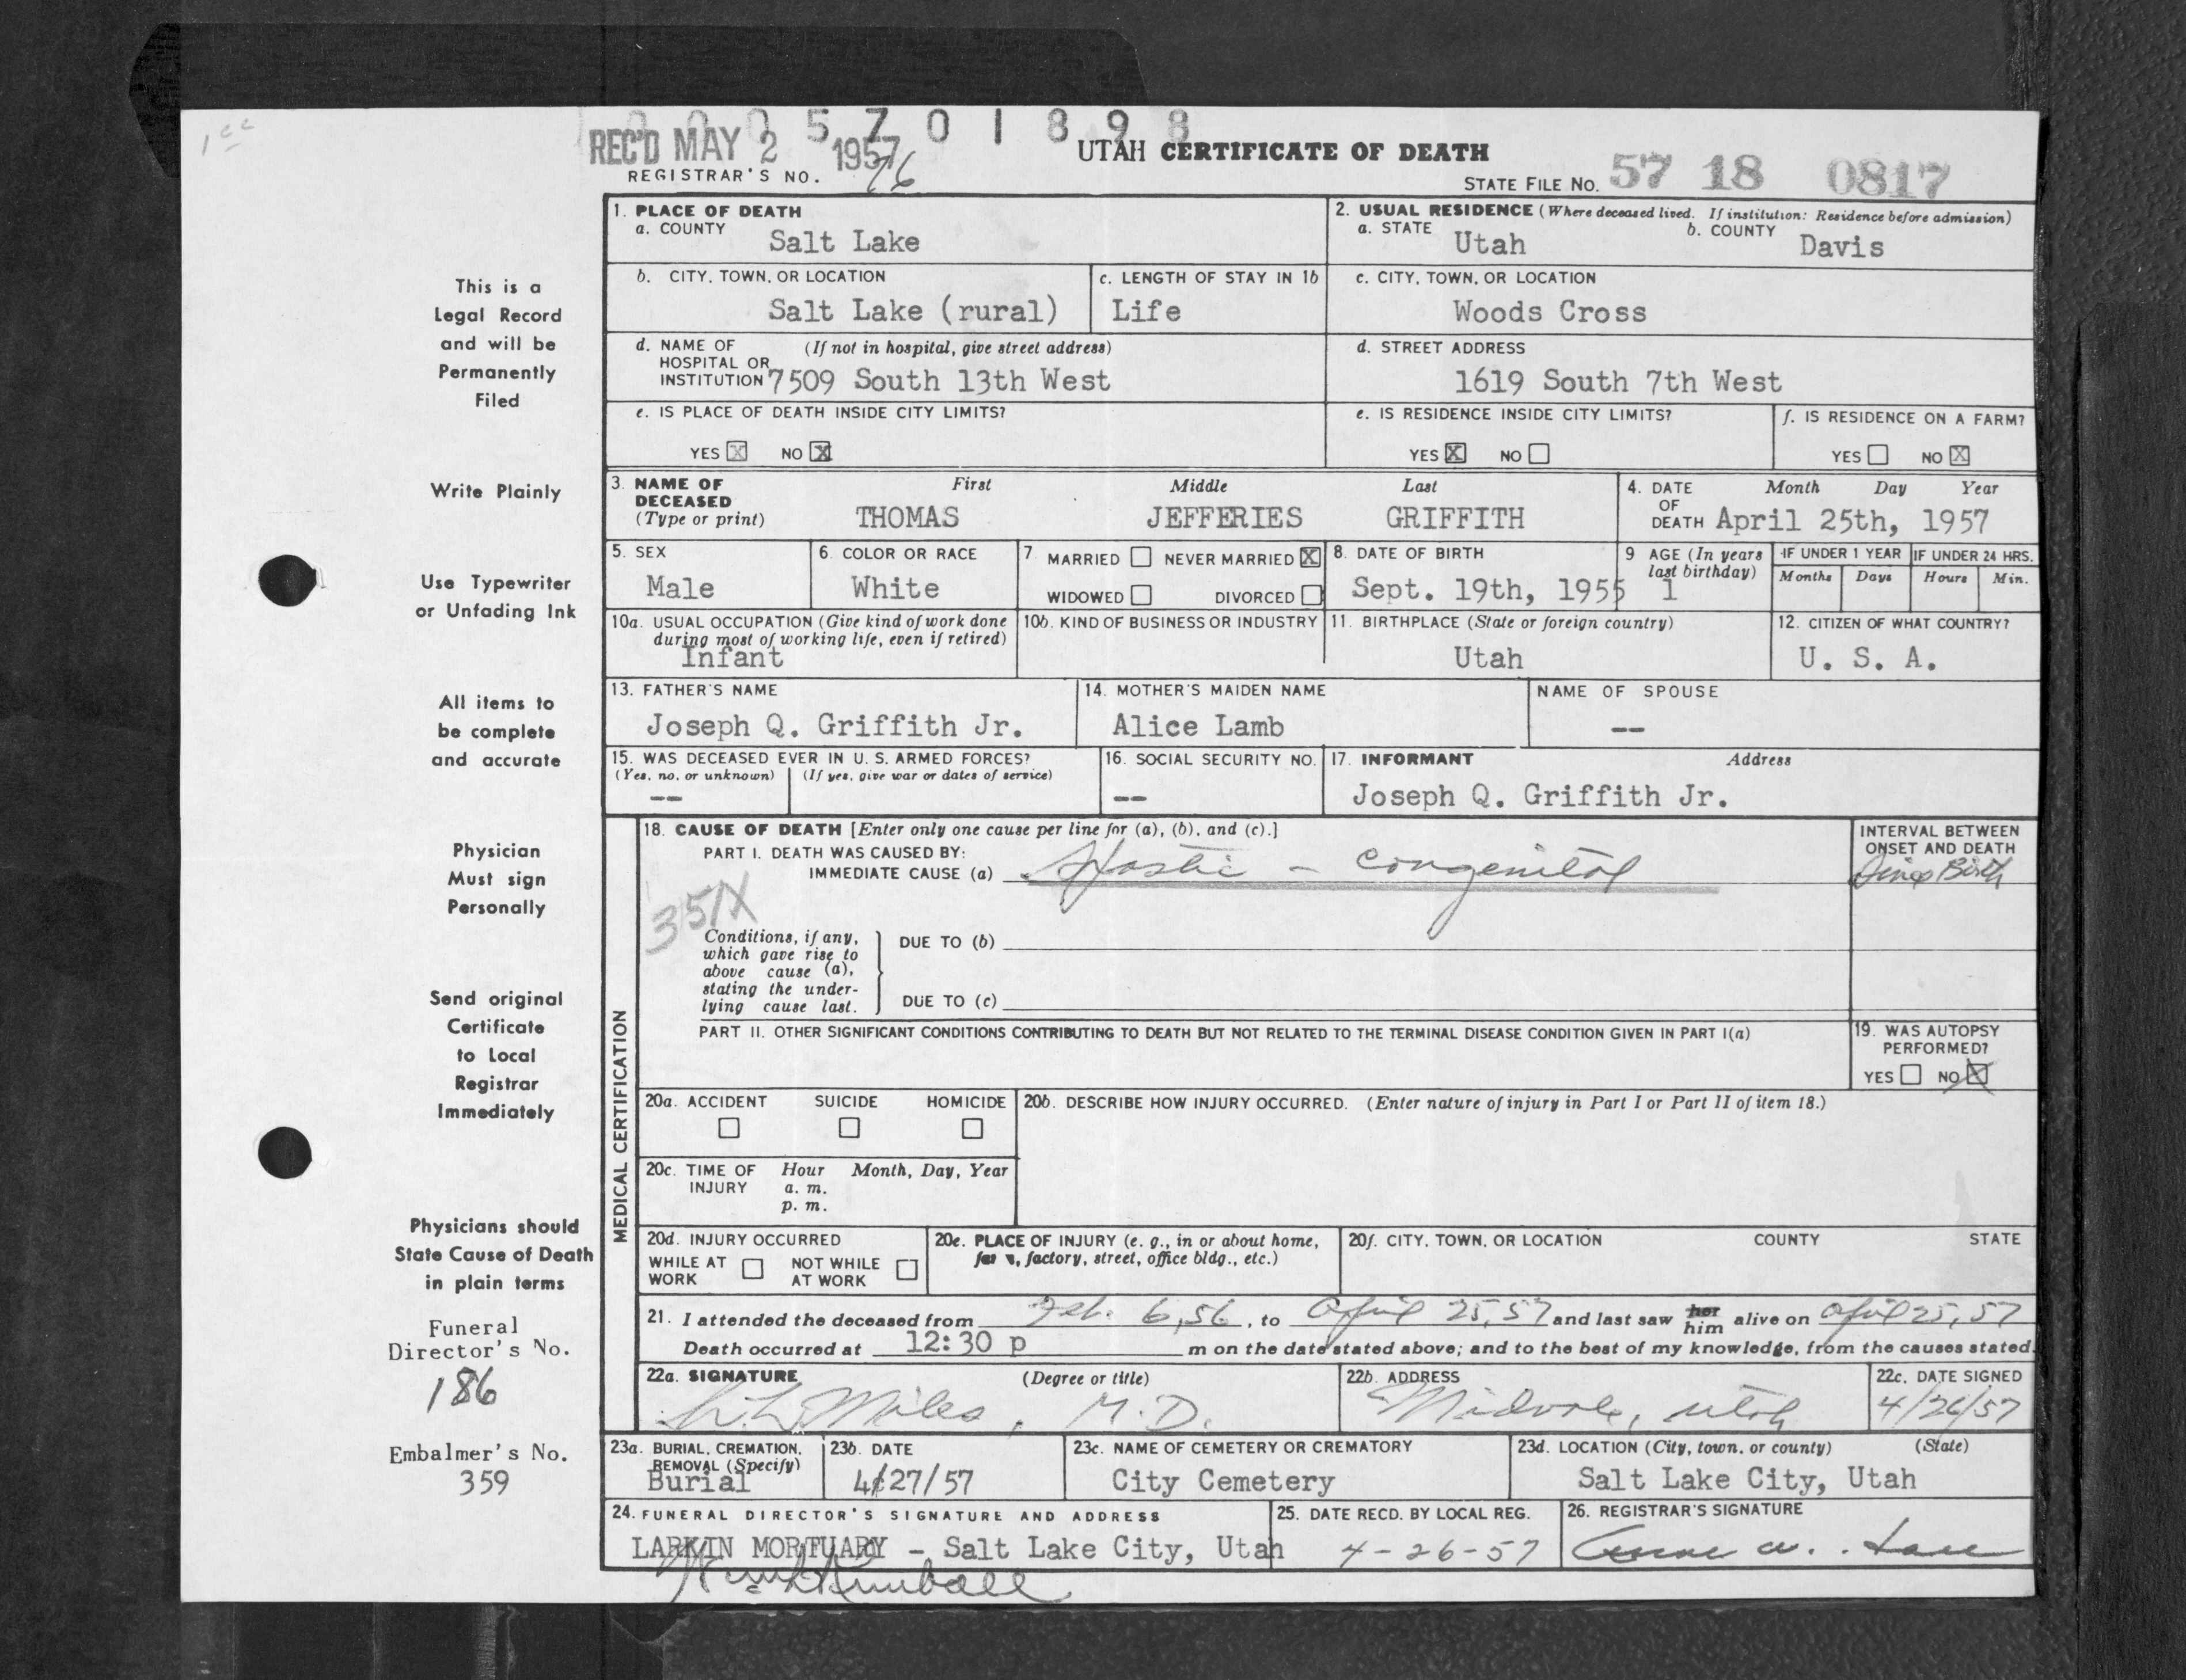 1 cc
0 0 0 5 7 0 1 8 9 8
REC'D MAY 2 1957
UTAH CERTIFICATE OF DEATH
REGISTRAR'S NO. 76
STATE FILE NO. 57 18 0817
This is a
Legal Record
and will be
Permanently
Filed
Write Plainly
Use Typewriter
or Unfading Ink
All items to
be complete
and accurate
Physician
Must sign
Personally
Send original
Certificate
to Local
Registrar
Immediately
Physicians should
State Cause of Death
in plain terms
Funeral
Director's No.
186
Embalmer's No.
359
1. PLACE OF DEATH
a. COUNTY Salt Lake
2. USUAL RESIDENCE (Where deceased lived. If institution: Residence before admission)
a. STATE Utah b. COUNTY Davis
b. CITY, TOWN, OR LOCATION
Salt Lake (rural)
c. LENGTH OF STAY IN 1b
Life
c. CITY, TOWN, OR LOCATION
Woods Cross
d. NAME OF (If not in hospital, give street address)
HOSPITAL OR
INSTITUTION 7509 South 13th West
d. STREET ADDRESS
1619 South 7th West
e. IS PLACE OF DEATH INSIDE CITY LIMITS?
YES X NO X
e. IS RESIDENCE INSIDE CITY LIMITS?
YES X NO
f. IS RESIDENCE ON A FARM?
YES NO X
3. NAME OF DECEASED (Type or print)
First Middle Last
THOMAS JEFFERIES GRIFFITH
4. DATE OF DEATH Month Day Year
April 25th, 1957
5. SEX
Male
6. COLOR OR RACE
White
7. MARRIED NEVER MARRIED X
WIDOWED DIVORCED
8. DATE OF BIRTH
Sept. 19th, 1955
9 AGE (In years last birthday)
1
IF UNDER 1 YEAR
Months Days
IF UNDER 24 HRS.
Hours Min.
10a. USUAL OCCUPATION (Give kind of work done
during most of working life, even if retired)
Infant
10b. KIND OF BUSINESS OR INDUSTRY
11. BIRTHPLACE (State or foreign country)
Utah
12. CITIZEN OF WHAT COUNTRY?
U. S. A.
13. FATHER'S NAME
Joseph Q. Griffith Jr.
14. MOTHER'S MAIDEN NAME
Alice Lamb
NAME OF SPOUSE
--
15. WAS DECEASED EVER IN U. S. ARMED FORCES?
(Yes, no, or unknown) (If yes, give war or dates of service)
--
16. SOCIAL SECURITY NO.
--
17. INFORMANT Address
Joseph Q. Griffith Jr.
MEDICAL CERTIFICATION
18. CAUSE OF DEATH [Enter only one cause per line for (a), (b), and (c).]
PART I. DEATH WAS CAUSED BY:
IMMEDIATE CAUSE (a) Spastic - Congenital
INTERVAL BETWEEN
ONSET AND DEATH
Since Birth
351X
Conditions, if any,
which gave rise to
above cause (a),
stating the under-
lying cause last.
DUE TO (b)
DUE TO (c)
PART II. OTHER SIGNIFICANT CONDITIONS CONTRIBUTING TO DEATH BUT NOT RELATED TO THE TERMINAL DISEASE CONDITION GIVEN IN PART I(a)
19. WAS AUTOPSY
PERFORMED?
YES NO X
20a. ACCIDENT SUICIDE HOMICIDE
20b. DESCRIBE HOW INJURY OCCURRED. (Enter nature of injury in Part I or Part II of item 18.)
20c. TIME OF INJURY Hour Month, Day, Year
a. m.
p. m.
20d. INJURY OCCURRED
WHILE AT WORK NOT WHILE AT WORK
20e. PLACE OF INJURY (e. g., in or about home,
farm, factory, street, office bldg., etc.)
20f. CITY, TOWN, OR LOCATION COUNTY STATE
21. I attended the deceased from Feb. 6, 56, to April 25, 57 and last saw her him alive on April 25, 57
Death occurred at 12:30 p m on the date stated above; and to the best of my knowledge, from the causes stated.
22a. SIGNATURE (Degree or title)
Miles, M.D.
22b. ADDRESS
Midvale, Utah
22c. DATE SIGNED
4/26/57
23a. BURIAL, CREMATION,
REMOVAL (Specify)
Burial
23b. DATE
4/27/57
23c. NAME OF CEMETERY OR CREMATORY
City Cemetery
23d. LOCATION (City, town, or county) (State)
Salt Lake City, Utah
24. FUNERAL DIRECTOR'S SIGNATURE AND ADDRESS
LARKIN MORTUARY - Salt Lake City, Utah
Kimball
25. DATE RECD. BY LOCAL REG.
4-26-57
26. REGISTRAR'S SIGNATURE